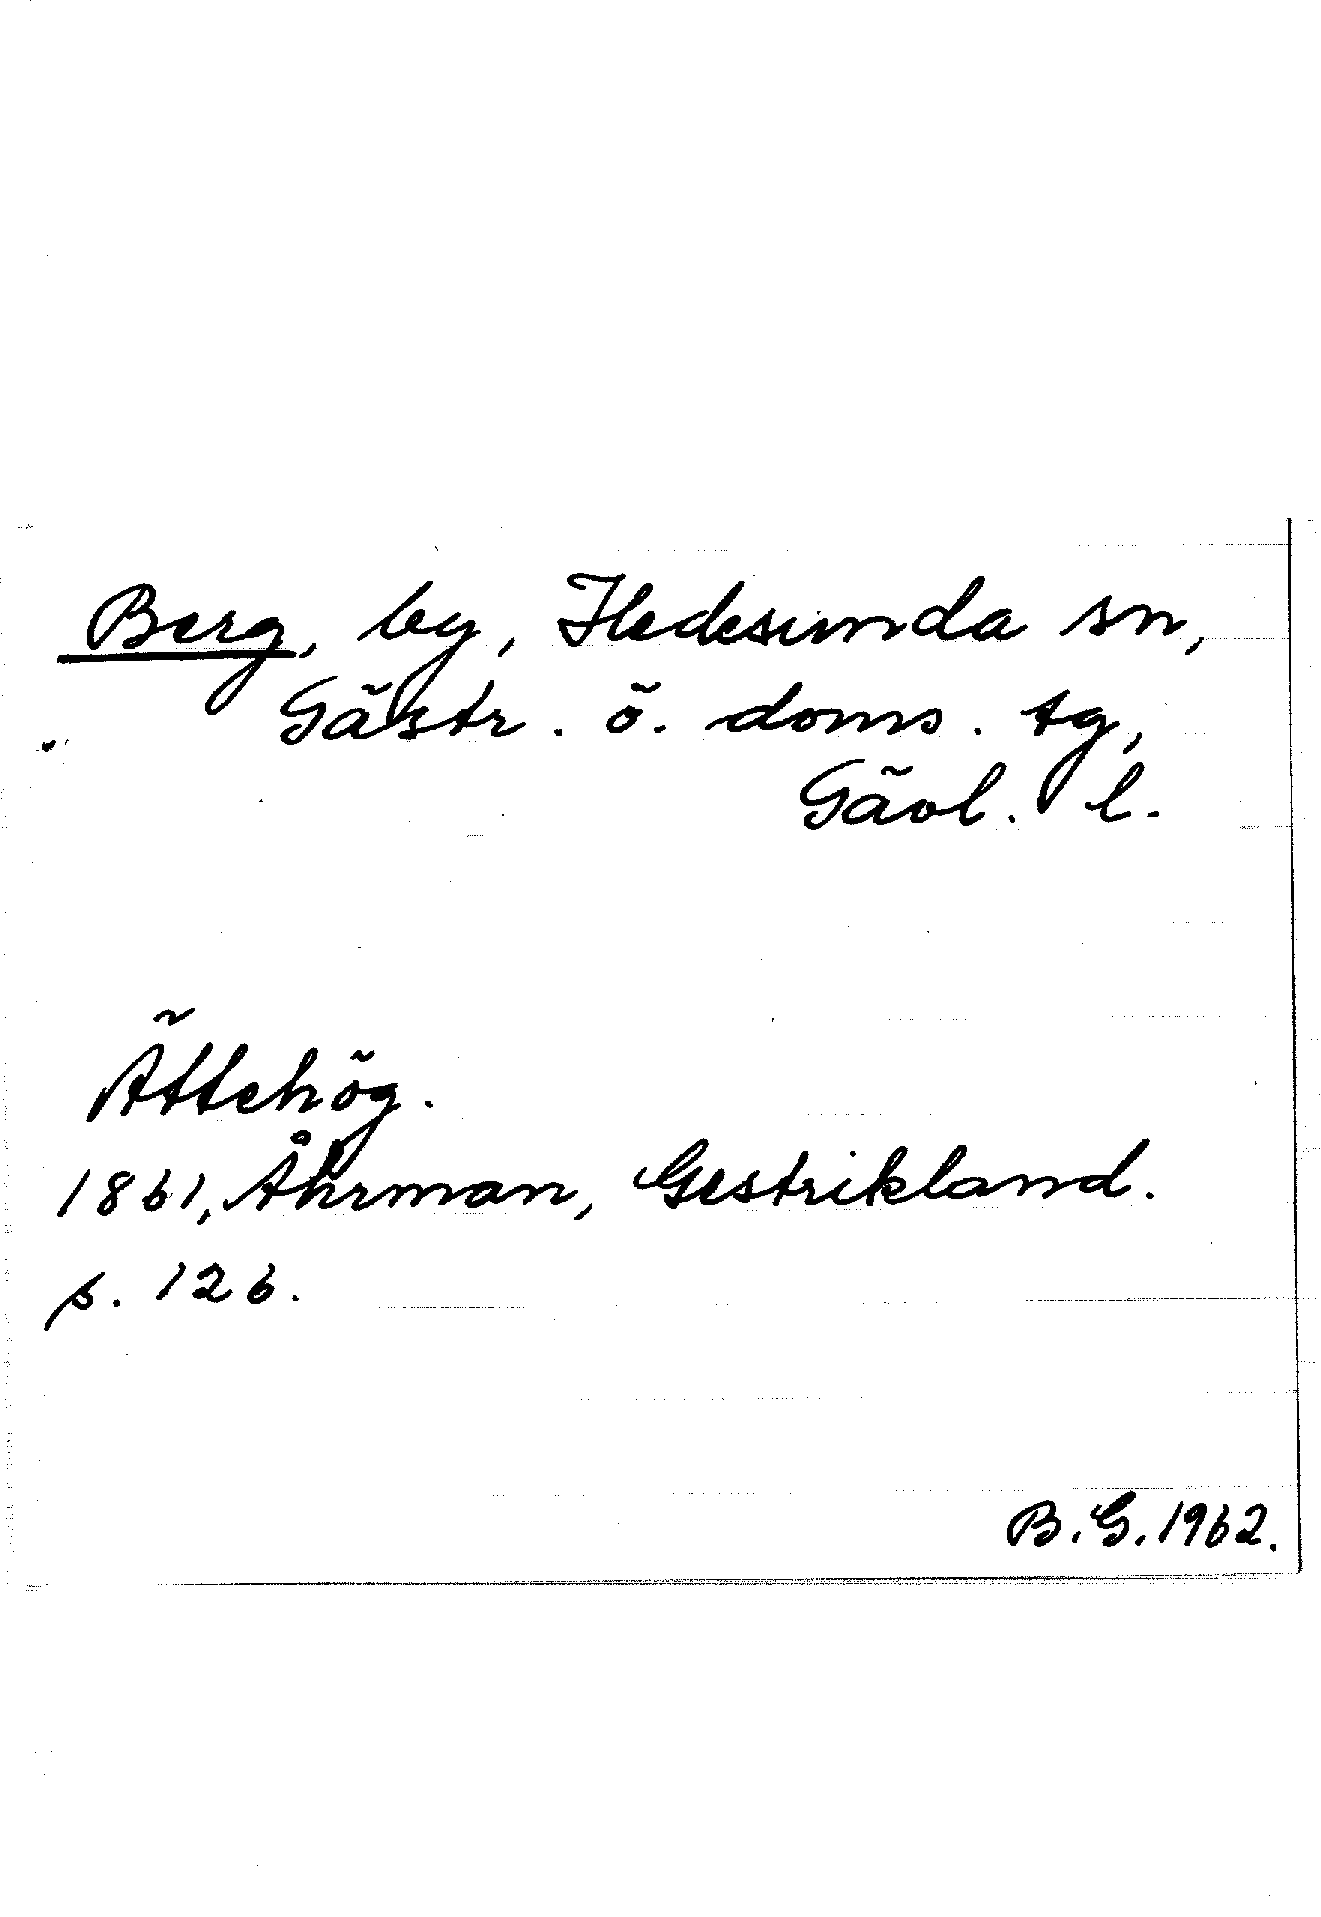 Berg, by, Hedesunda sn,
Gästr. ö. doms. tg,
Gävl. l.
Ättehög.
1861, Åhrman, Gestrikland.
s. 126.
B.G. 1962.